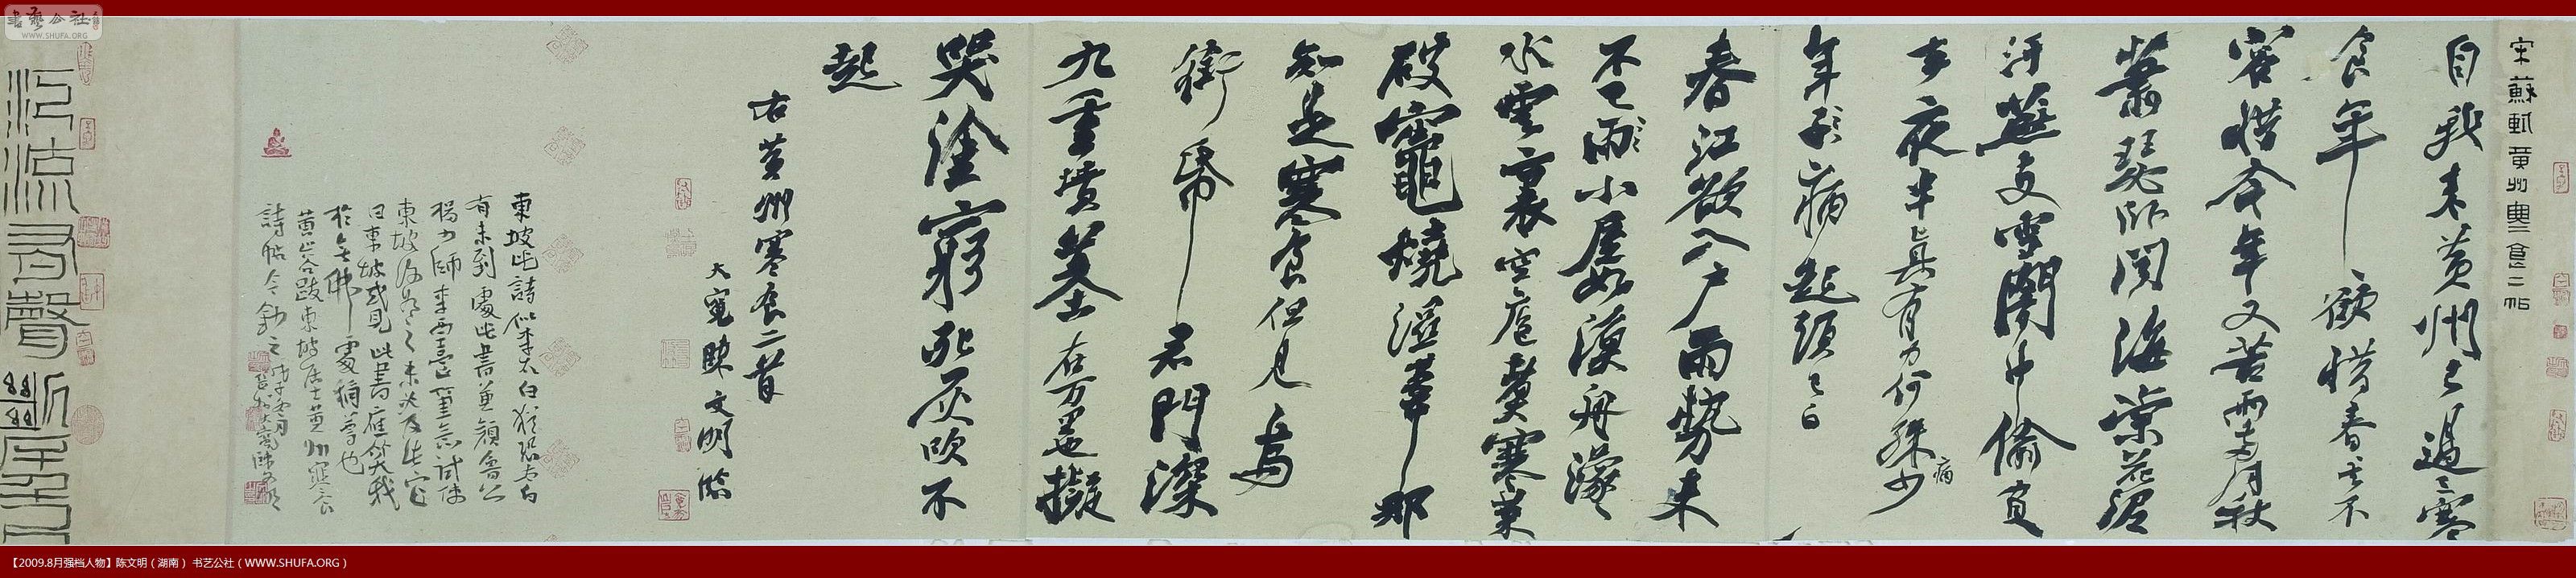 宋蘇軾黄州寒食二帖
自我来黄州已過三寒
食年年欲惜春春去不
容惜今年又苦雨兩月秋
蕭瑟卧聞海棠花泥
汙燕支雪闇中偷負
去夜半真有力何殊少
病
年子病起頭已白
春江欲入户雨勢来
不已雨小屋如漁舟濛濛
水雲裏空庖煮寒菜
破竈燒濕葦那
知是寒食但見烏
銜帋君門深
九重墳墓在万里也擬
哭塗窮死灰吹不
起
右黄州寒食二首
大寬陳文明臨
東坡此詩似李太白猶恐太白
有未到處此書兼顔魯公
楊少師李西臺筆意試使
東坡復為之未必及此它
日東坡或見此書應笑我
於無佛處稱尊也
黄山谷跋東坡居士黄州寒食
詩帖今録之
江流有聲斷岸千尺
書藝公社
WWW.SHUFA.ORG
【2009.8月强档人物】陈文明（湖南） 书艺公社（WWW.SHUFA.ORG）